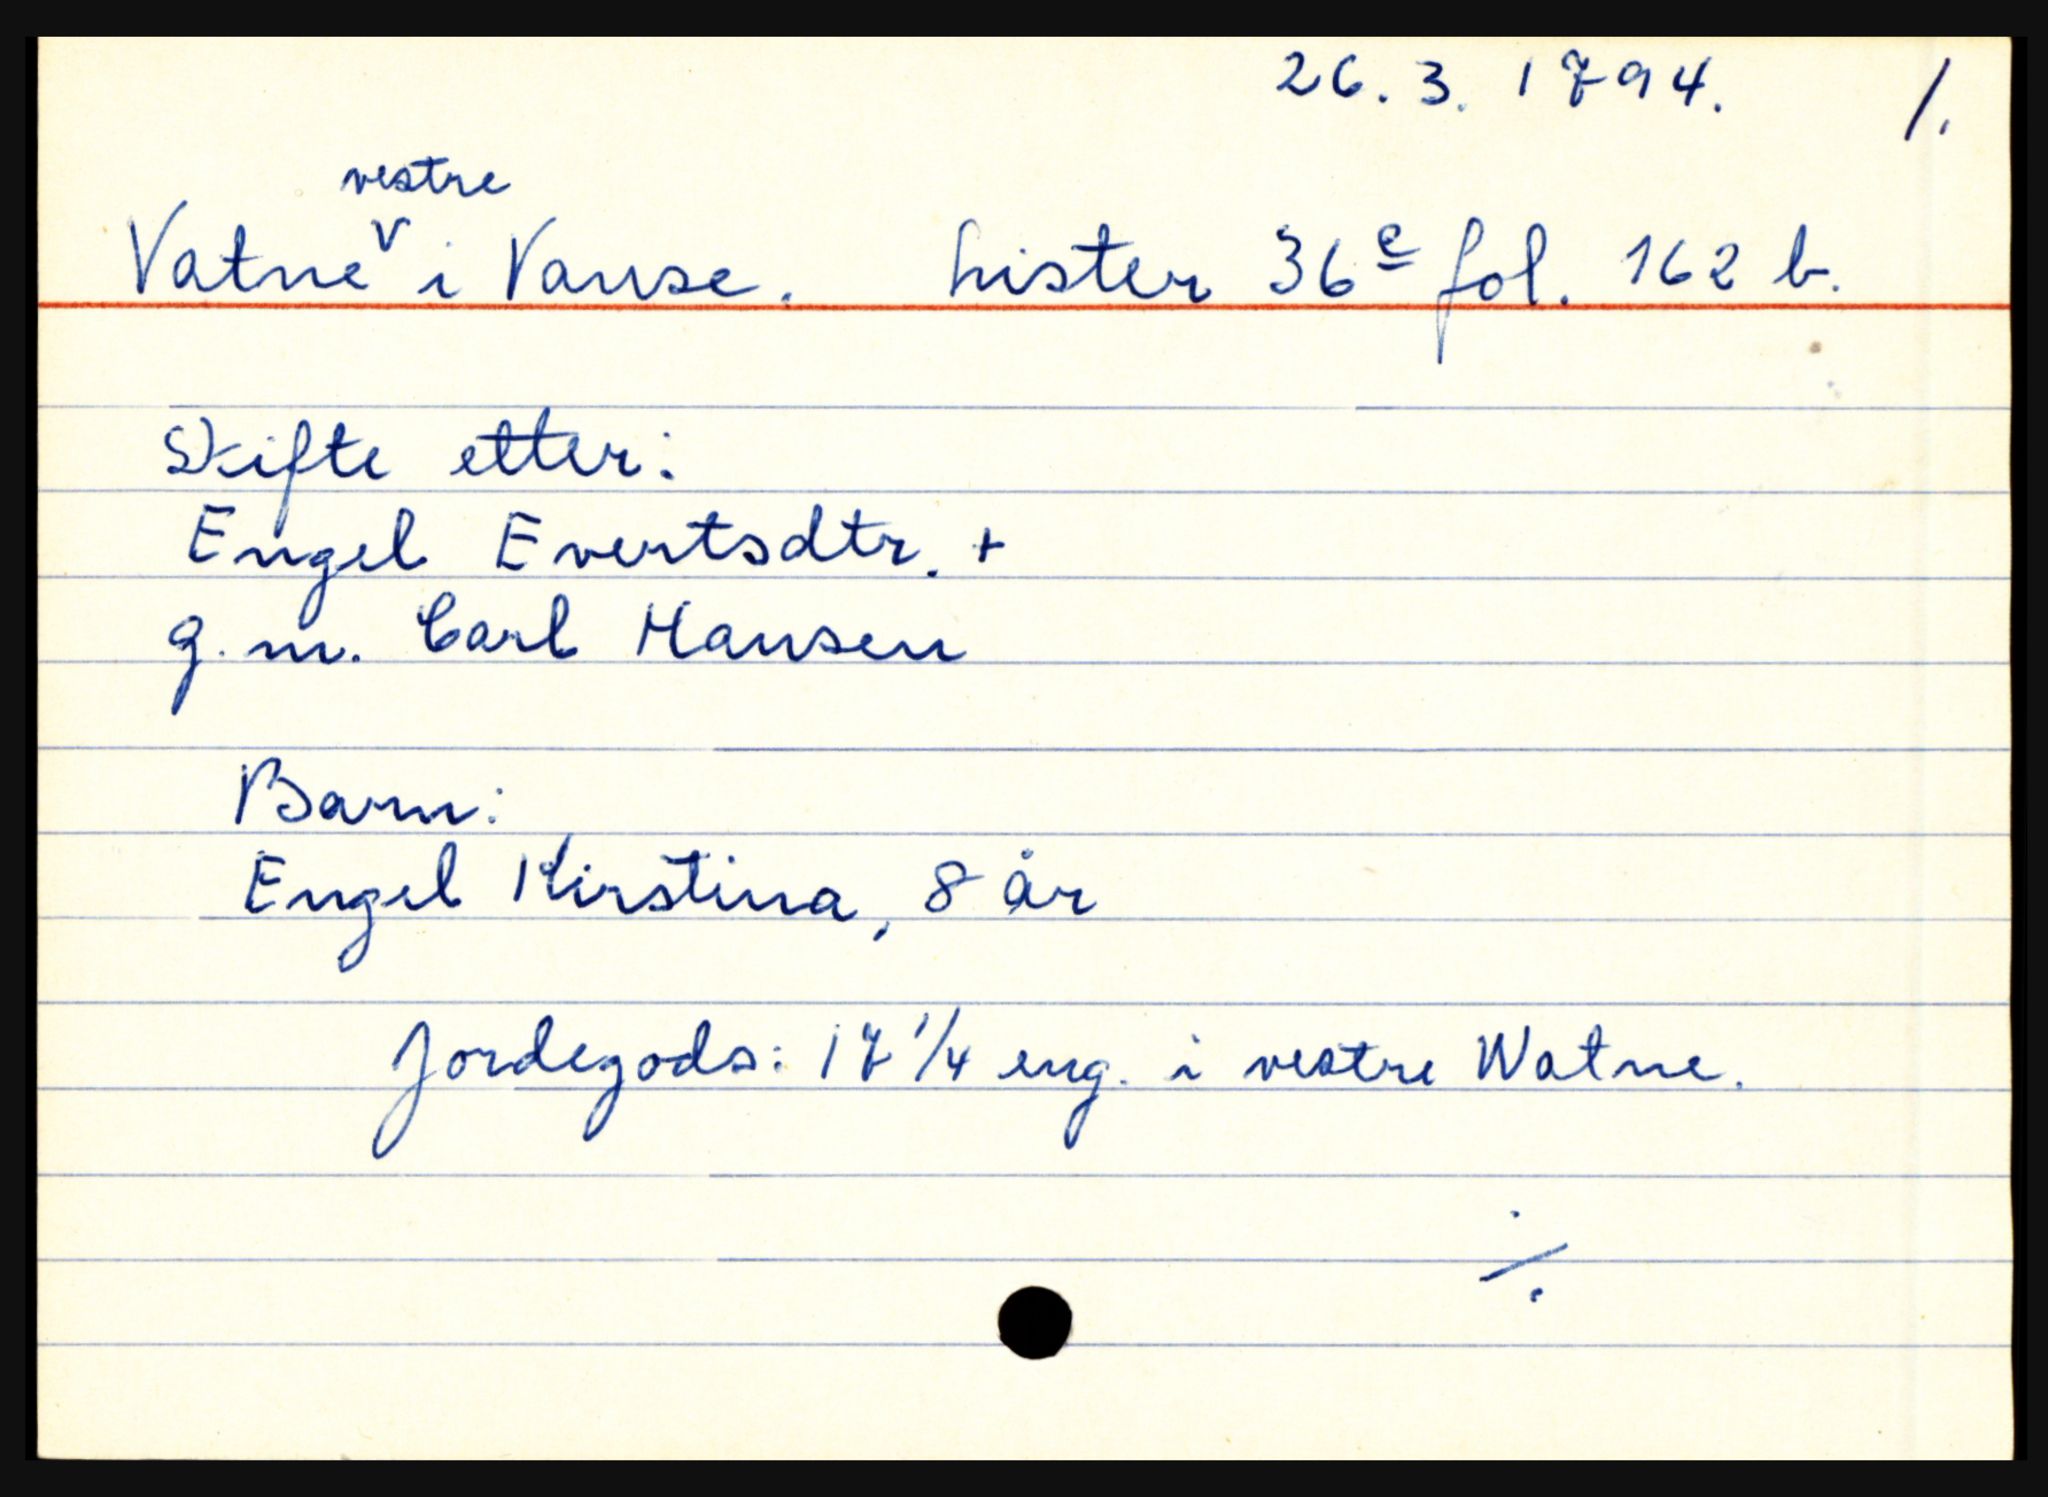 26. 3. 1794. /.
vestre
Vatne v i Vanse. Lister 36 c fol. 162 b.
Skifte etter:
Engel Evertsdtr. +
g. m. Carl Hansen
Barn:
Engel Kirstina, 8 år
Jordegods: 17 1/4 eng. i vestre Watne.
./.